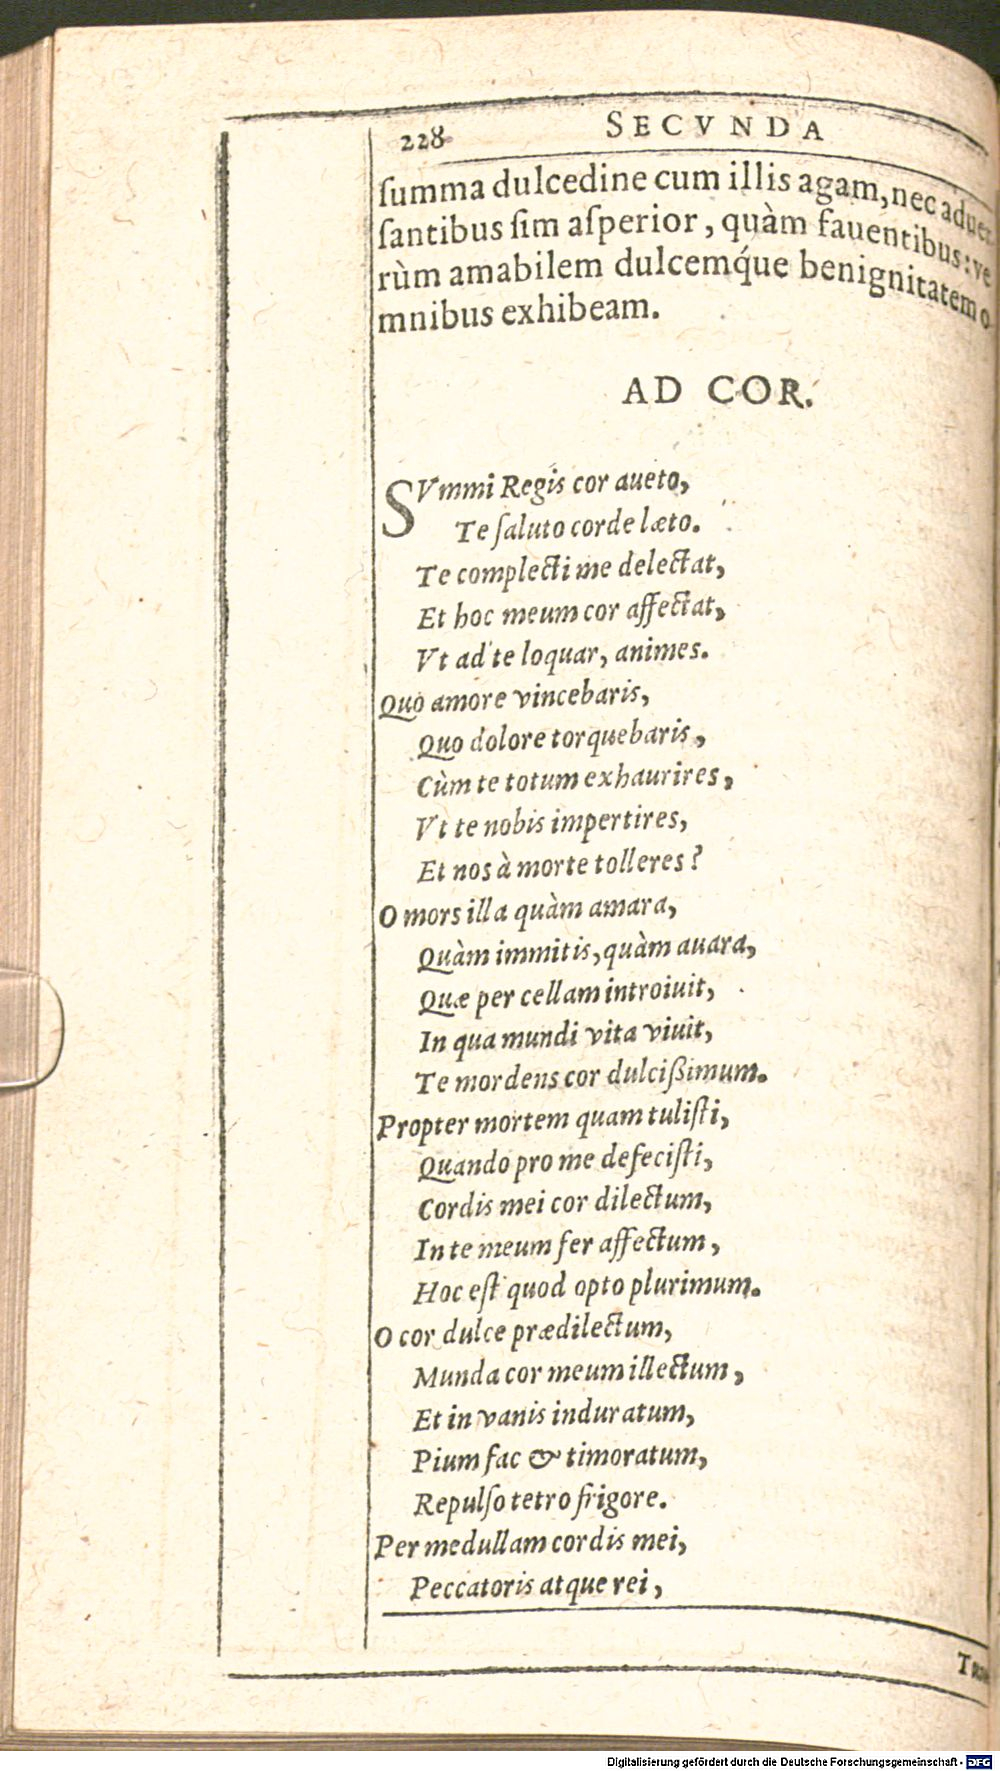 228 SECVNDA
ſumma dulcedine cum illis agam, nec aduer
ſantibus ſim aſperior, quàm fauentibus: ve
rùm amabilem dulcemq́ue benignitatem o
mnibus exhibeam.
AD COR.
SVmmi Regis cor aueto,
Te ſaluto corde læto.
Te complecti me delectat,
Et hoc meum cor affectat,
Vt ad te loquar, animes.
Quo amore vincebaris,
Quo dolore torquebaris,
Cùm te totum exhaurires,
Vt te nobis impertires,
Et nos à morte tolleres?
O mors illa quàm amara,
Quàm immitis, quàm auara,
Quæ per cellam introiuit,
In qua mundi vita viuit,
Te mordens cor dulcißimum.
Propter mortem quam tuliſti,
Quando pro me defeciſti,
Cordis mei cor dilectum,
In te meum fer affectum,
Hoc eſt quod opto plurimum.
O cor dulce prædilectum,
Munda cor meum illectum,
Et in vanis induratum,
Pium fac & timoratum,
Repulſo tetro frigore.
Per medullam cordis mei,
Peccatoris atque rei,
Digitalisierung gefördert durch die Deutsche Forschungsgemeinschaft - DFG